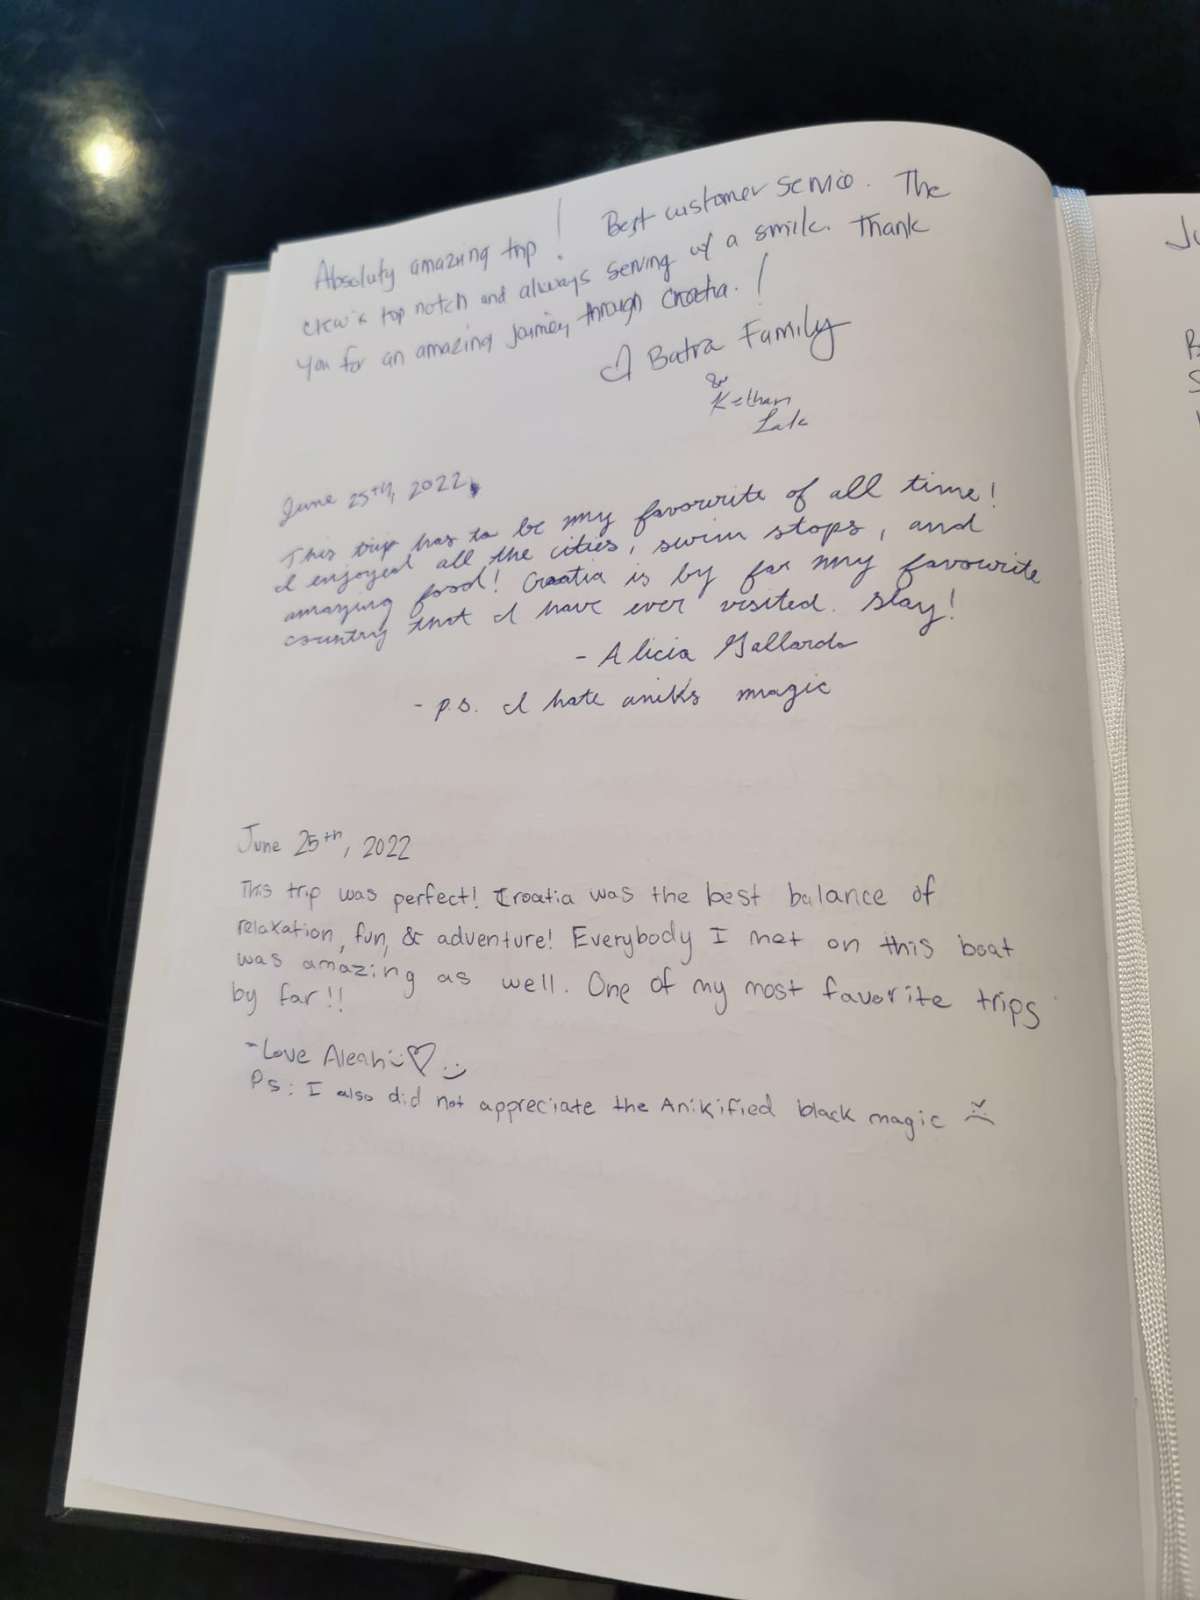 Absoluty amazing trip! Best customer service. The
crew is top notch and always serving w/ a smile. Thank
you for an amazing journey through Croatia.!
Batra Family
&
Lale
June 25TH, 2022
This trip has to be my favourite of all time!
I enjoyed all the cities, swim stops, and
amazing food! Croatia is by far my favourite
country that I have ever visited. Slay!
- Alicia Gallardo
- p.s. I hate anik's magic
June 25th, 2022
This trip was perfect! Croatia was the best balance of
relaxation, fun, & adventure! Everybody I met on this boat
was amazing as well. One of my most favorite trips
by far!!
- Love Aleah
Ps: I also did not appreciate the Anikified black magic
Ju
B
S